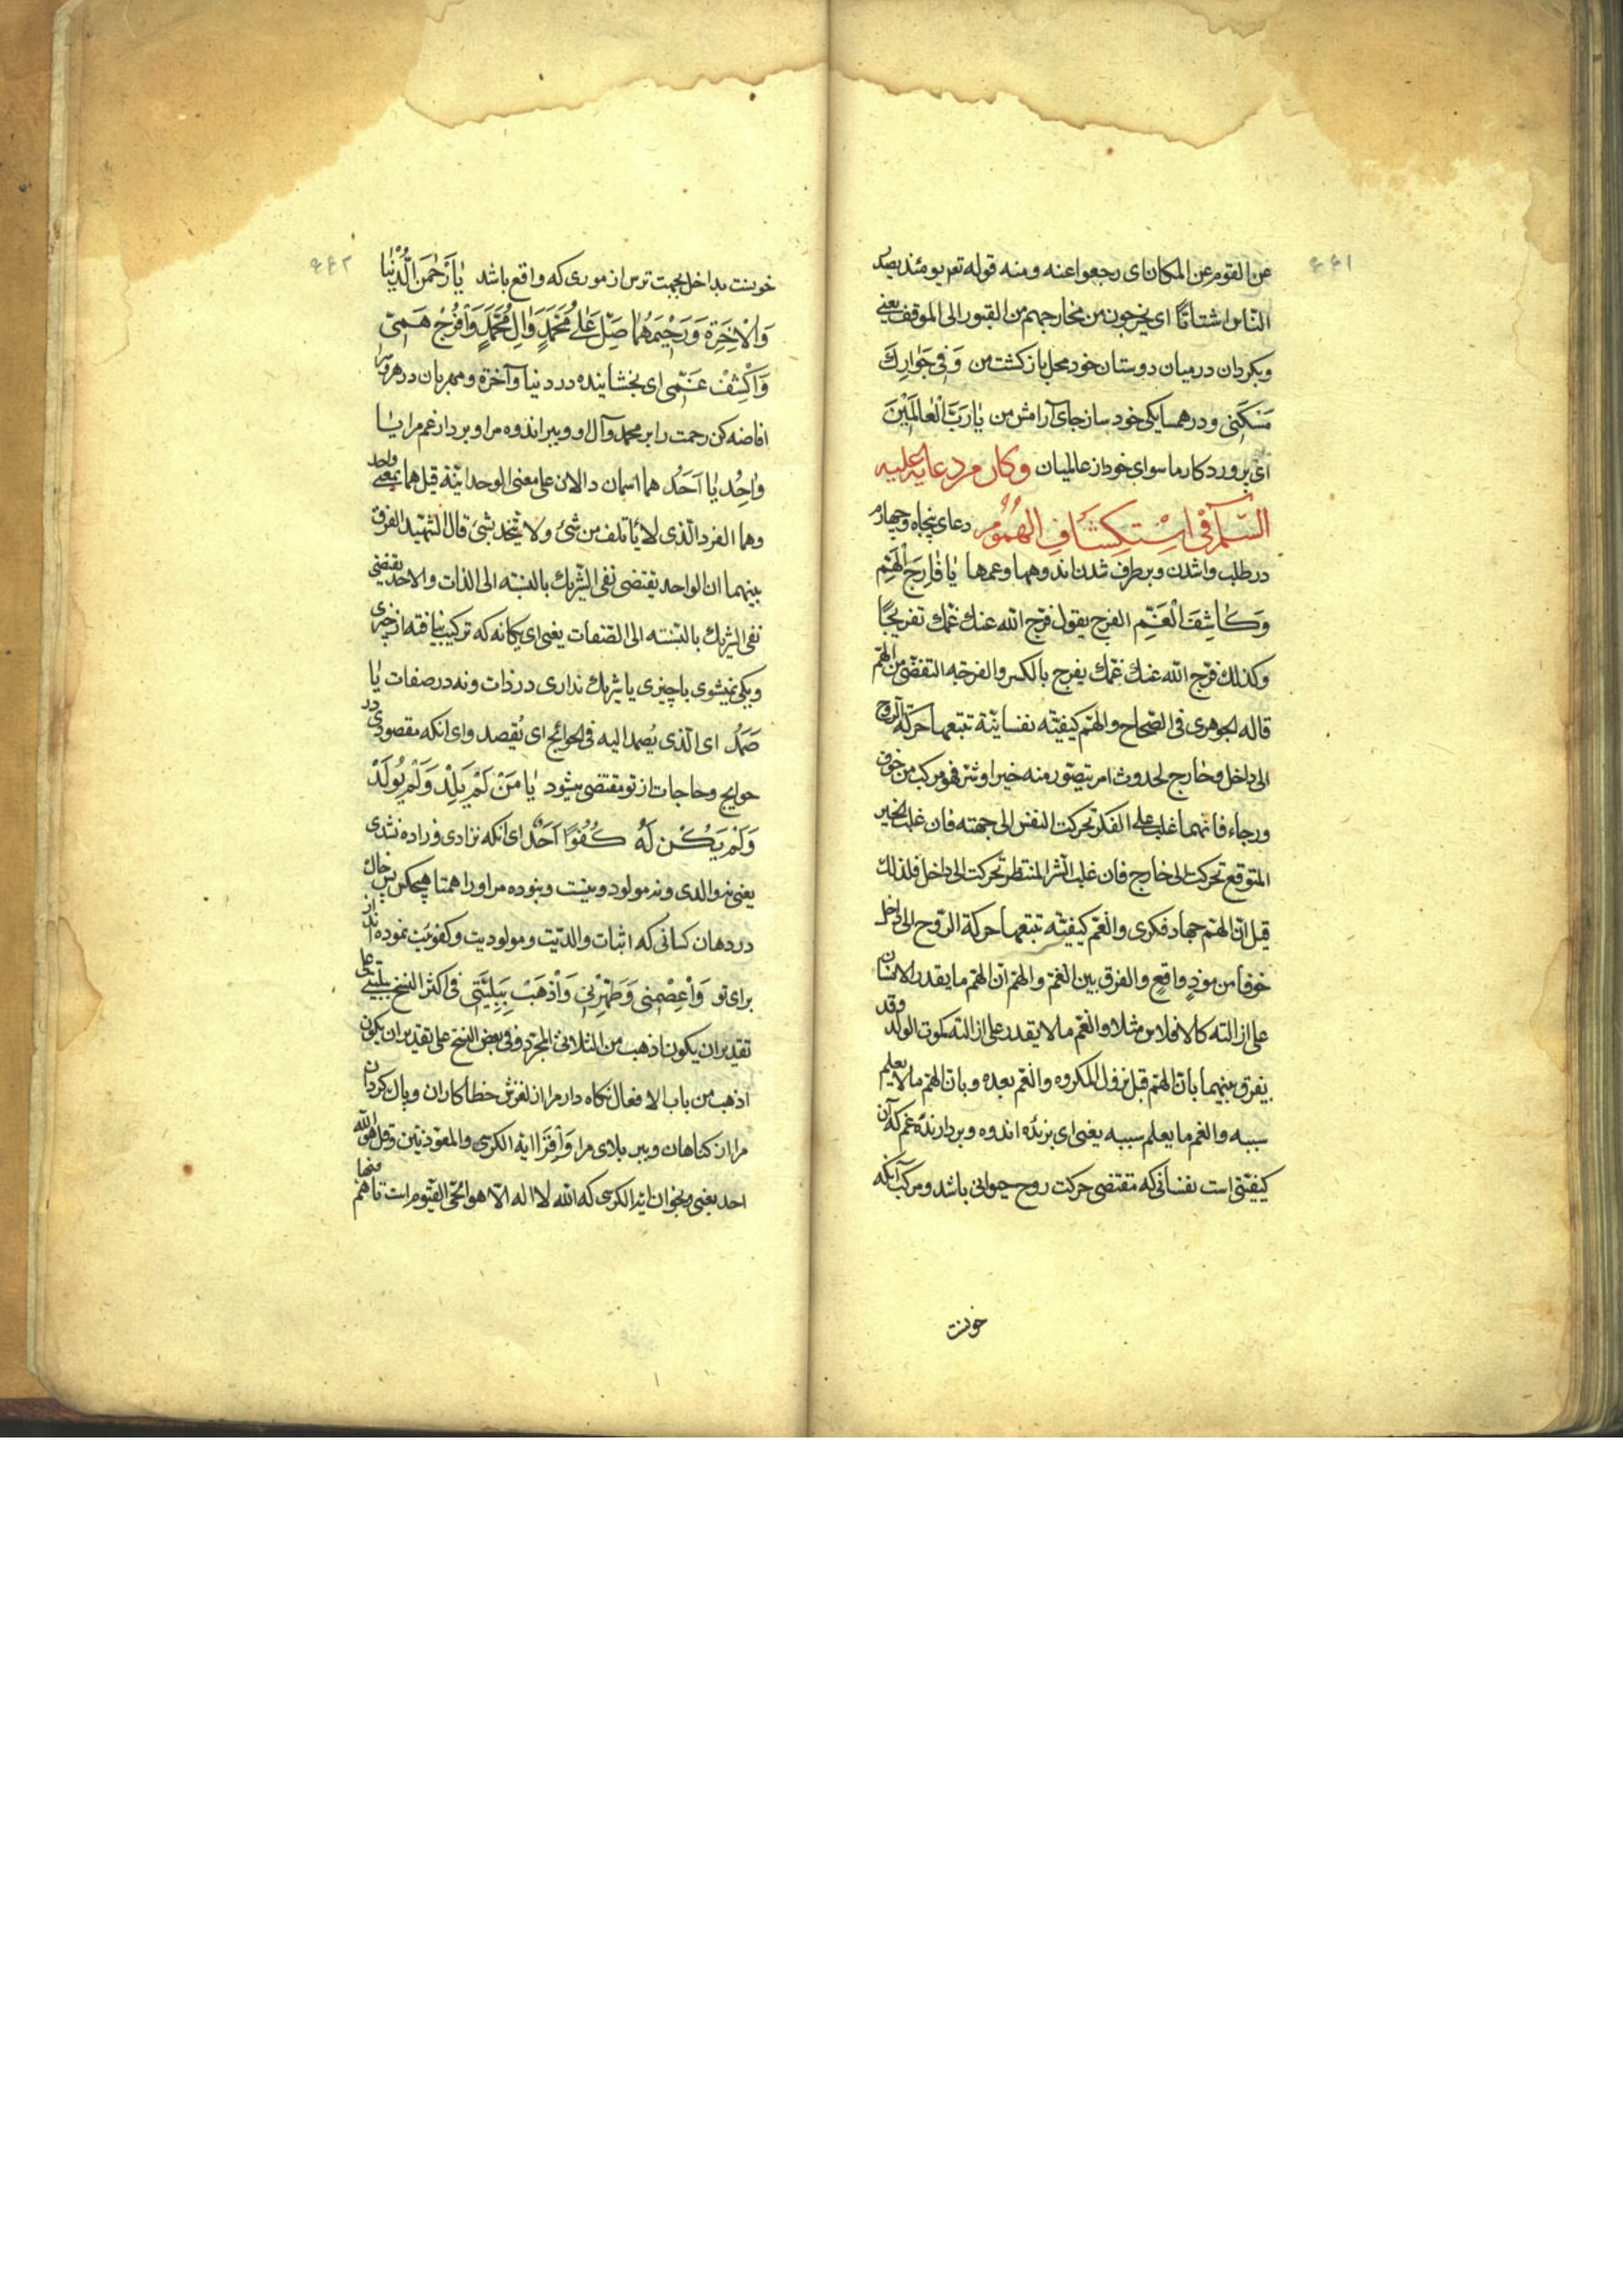 ۶۶۱
عن القوم عن المكان ای رجعوا عنه و منه قوله تعم يومئذ يصدر
الناس اشتاتًا ای یخرجون من مخارجهم من القبور الی الموقف یعنی
و بکردان در میان دوستان خود محل باز کشت من وَ فِی جَوٰارِكَ
مَسْكَنِی و در همسایکی خود ساز جای آرامش من یٰا رَبَّ الْعٰالَمِیْنَ
ای پروردکار ما سوای خود از عالمیان وکان من دعائه علیه
السّلام فی اسْتِكْشَافِ الهُمُومِ دعای پنجاه و چهارم
در طلب وا شدن و بر طرف شدن اندوهها و غمها یٰا فٰارِجَ الْهَمِّ
وَ كَاشِفَ الْغَمِّ الفرج یقول فرّج الله عنك غمّك تفریجًا
و كذلك فرج الله عنك غمّك یفرج بالكسر و الفرجة التفصّی من الهمّ
قاله الجوهری فی الصّحاح و الهمّ کیفیّة نفسانیّة تتبعها حركة الروح
الی داخل و خارج لحدوث امر یتصوّر منه خیر او شر فهو مركب من خوف
و رجاء فایّهما غلب علی الفکر تحركت النفس الی جهته فان غلب الخیر
المتوقع تحركت الی خارج فان غلب الشر المنتظر تحركت الی داخل فلذلك
قیل انّ الهمّ جهاد فکری و الغمّ کیفیّة تتبعها حركة الرّوح الی داخل
خوفا من موذٍ واقعٍ و الفرق بین الغمّ و الهمّ انّ الهمّ ما یقدر الانسان
علی ازالته كالافلاس مثلا و الغمّ ما لا یقدر علی ازالته كموت الولد و قد
یفرق بینهما بانّ الهمّ قبل نزول المكروه و الغم بعده و بانّ الهمّ ما لا یعلم
سببه و الغم ما یعلم سببه یعنی ای برنده اندوه و بردارنده غم که آن
کیفیّتی است نفسانی که مقتضی حرکت روح حیوانی باشد و مرکب آنکه
خونت
۶۶۲
خونت بداخل بجهت ترس از موری که واقع باشد یٰا رَحْمٰنَ الدُّنْیٰا
وَ الْاٰخِرَةِ وَ رَحِیْمَهُمٰا صَلِّ عَلٰی مُحَمَّدٍ وَ اٰلِ مُحَمَّدٍ وَ افْرُجْ هَمّی
وَ اكْشِفْ غَمّی ای بخشاینده در دنیا و آخرة و مهربان در هر دو سرا
افاضه کن رحمت را بر محمد و آل او و ببر اندوه مرا و بردار غم مرا یٰا
وٰاحِدُ یٰا اَحَدُ هما اسمان دالان علی معنی الوحدانیّة قیل هما بمعنی واحد
و هما الفرد الّذی لا یأتلف من شئ و لا یتّحد بشئ قال الشّهید الفرق
بینهما ان الواحد یقتضی نفی الشّریك بالنسبة الی الذات و الاحد یقتضی
نفی الشریك بالنّسبة الی الصّفات یعنی ای یکانه که ترکیب نیافته از چیزی
و یکی نمیشوی با چیزی یا شریك نداری در ذات و نه در صفات یٰا
صَمَدُ ای الّذی یُصمد الیه فی الحوائج ای یُقصد و ای انکه مقصودی در
حوایج و حاجات از تو مقتضی میشود یٰا مَنْ لَمْ یَلِدْ وَ لَمْ یُولَدْ
وَ لَمْ یَكُنْ لَهُ كُفُوًا اَحَدٌ ای انکه نزادی و زاده نشدی
یعنی نه والدی و نه مولود و نیست و نبوده مر او را همتا هیچکس پس خاك
در دهان کسانی که اثبات والدیّت و مولودیت و کفویّت نموده اند از
برای تو وَ اعْصِمْنی وَ طَهِّرْنی وَ اذْهَبْ بِبَلِیَّتی فی اکثر النسخ ببلیّتی علی
تقدیر ان یكون اذهب من الثلاثی المجرّد و فی بعض النسخ علی تقدیر ان یكون
اذهب من باب الافعال نکاه دار مرا از لغزش خطاکاران و پاك کردان
مرا از کناهان و ببر بلای مرا وَ اقْرَأ ایة الكرسی و المعوّذتین و قل هو الله
احد یعنی و بخوان ایة الکرسی که الله لا اله الّا هو الحّی القیّوم است تا هم فیها